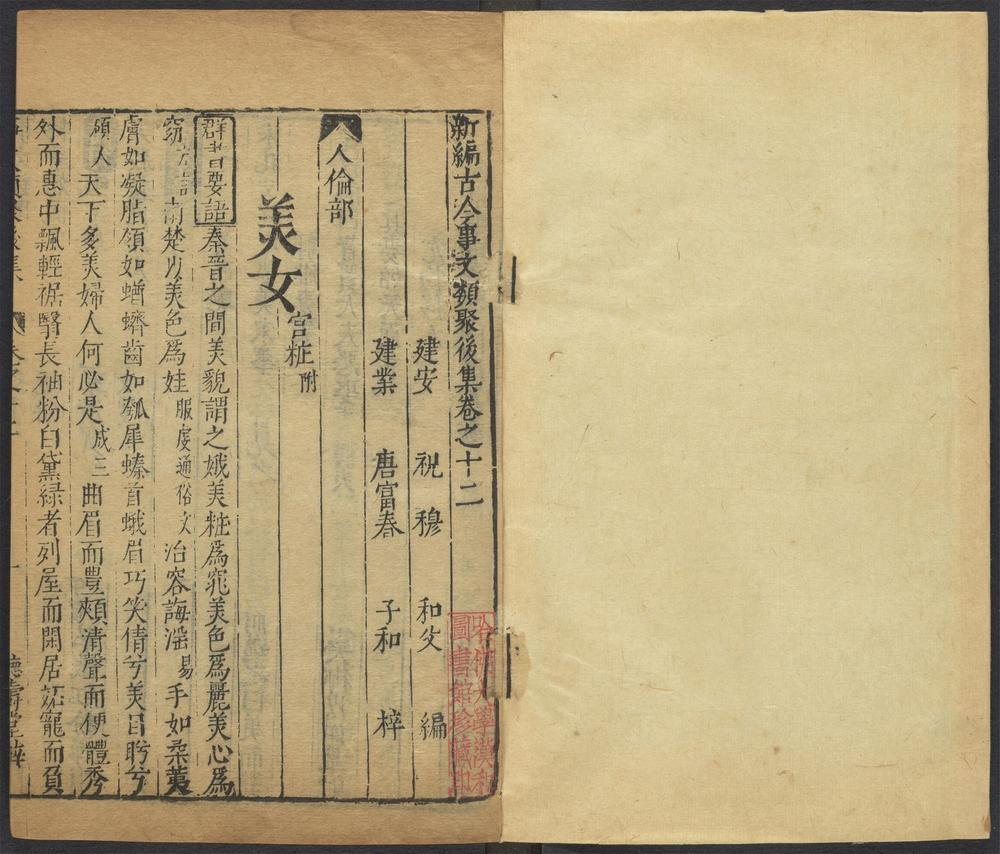 新編古今事文類聚後集卷之十二
建安 祝穆 和父 編
建業 唐富春 子和 梓
人倫部
美女 宫粧附
群書要語 秦晉之間美貌謂之娥美粧爲窕美色爲麗美心爲
窈 南楚以美色爲娃 服虔通俗文 治容誨淫 易 手如柔荑
膚如凝脂領如蝤蠐齒如瓠犀螓首蛾眉巧笑倩兮美目盼兮
碩人 天下多美婦人何必是 成三 曲眉而豐頰清聲而便體秀
外而惠中飄輕裾翳長袖粉白黛緑者列屋而閑居妬寵而負
德壽堂梓
哈佛大學漢和圖書館珍藏印